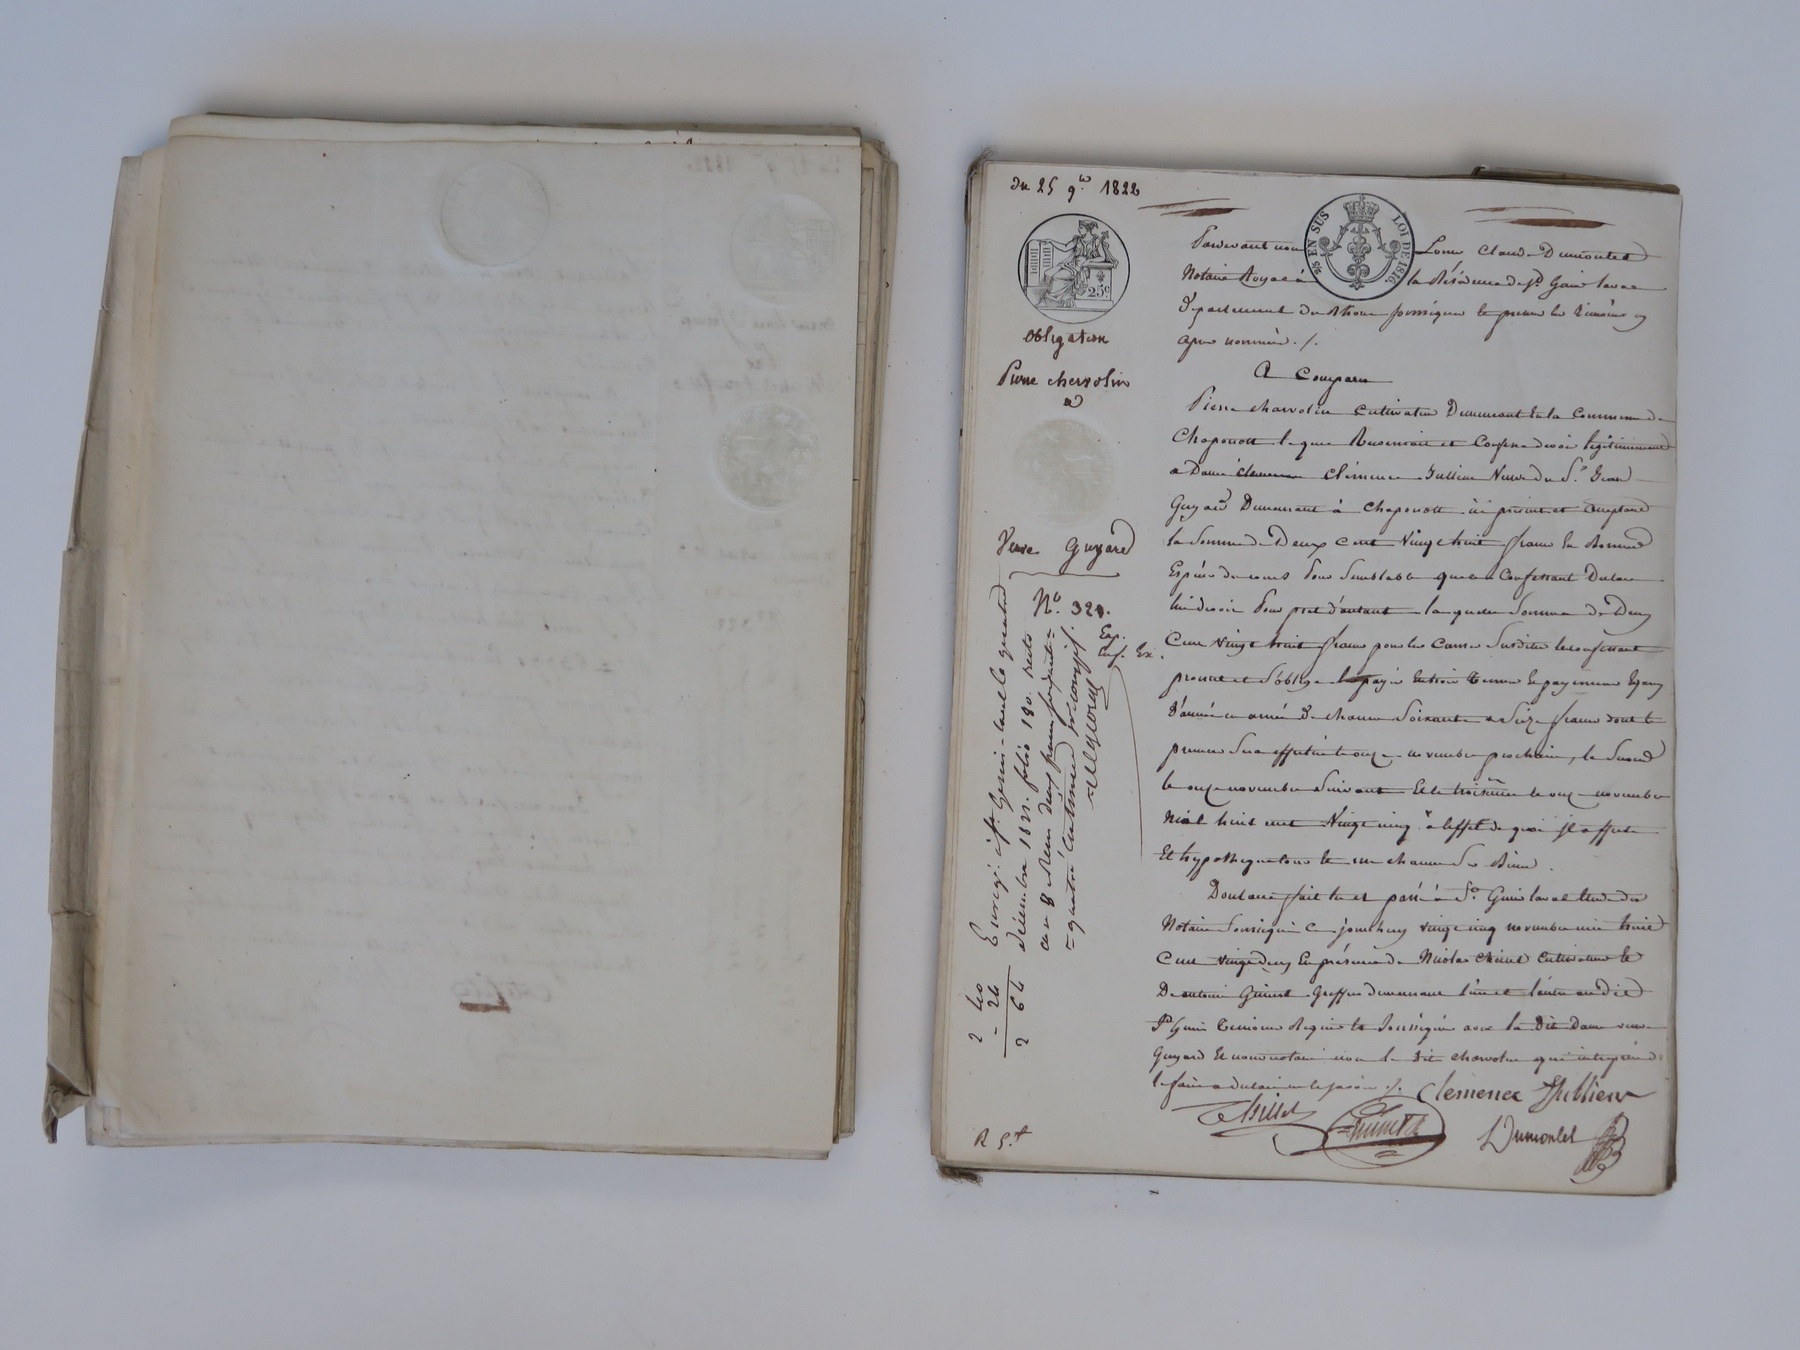 du 25 9.bre 1822
25 EN SUS LOI DE 1816.
25c
obligation
Pierre chervolin
a
Veuve Guyard
N.o 321.
Exp.
Enregi. à St. Genis-Laval le quatre
décembre 1822. folio 180. recto
case 8 Reçu deux francs
R 5.f
2 40
- 24
2 64
Pardevant nous Louis Claude Dumontet
Notaire Royal à la Résidence de St Genis laval
Département du Rhône soussigné en présence des témoins cy
après nommés ./.
A Comparu
Pierre charvolin cultivateur Demeurant En la Commune de
Chaponost lequel Reconnoit et Confesse devoir légitimement
a Dame Clémence Jullien Veuve du Sr. Jean
Guyard Demeurant à Chaponost ici présente et acceptante
la Somme de Deux Cent Vingt huit francs En Bonnes
Espèces de cours Pour Semblable que le Confessant Déclare
lui devoir Pour prêt d'autant laquelle Somme de Deux
Cent Vingt huit francs pour les Causes Susdites le confessant
promet et S'oblige de payer En trois termes Et payemens Egaux
D'année en année De chacun Soixante et Seize francs dont le
premier Sera effectué le onze novembre prochain, le Second
le onze novembre Suivant Et le troisième le onze novembre
Mil huit cent Vingt cinq à l'effet de quoi il affecte
Et hypothèque tous et un chacun Ses Biens.
Dont acte fait lu et passé à St. Genis laval Etude du
Notaire Soussigné Ce jourd'huy vingt cinq novembre mil huit
Cent vingt deux En présence de Nicolas Cultivateur et
De antoine Greffier demeurant l'un et l'autre audit
St Genis Témoins Requis et Soussignés avec la Dite Dame veuve
Guyard Et nous notaire non le dit charvolin qui interpellé de
le faire a déclaré ne le savoir ./. Clemence Jullien
Dumontet